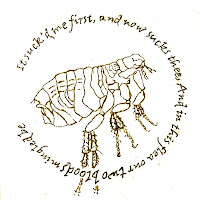 It suck'd me first, and now sucks thee, And in this flea our two bloods mingled be